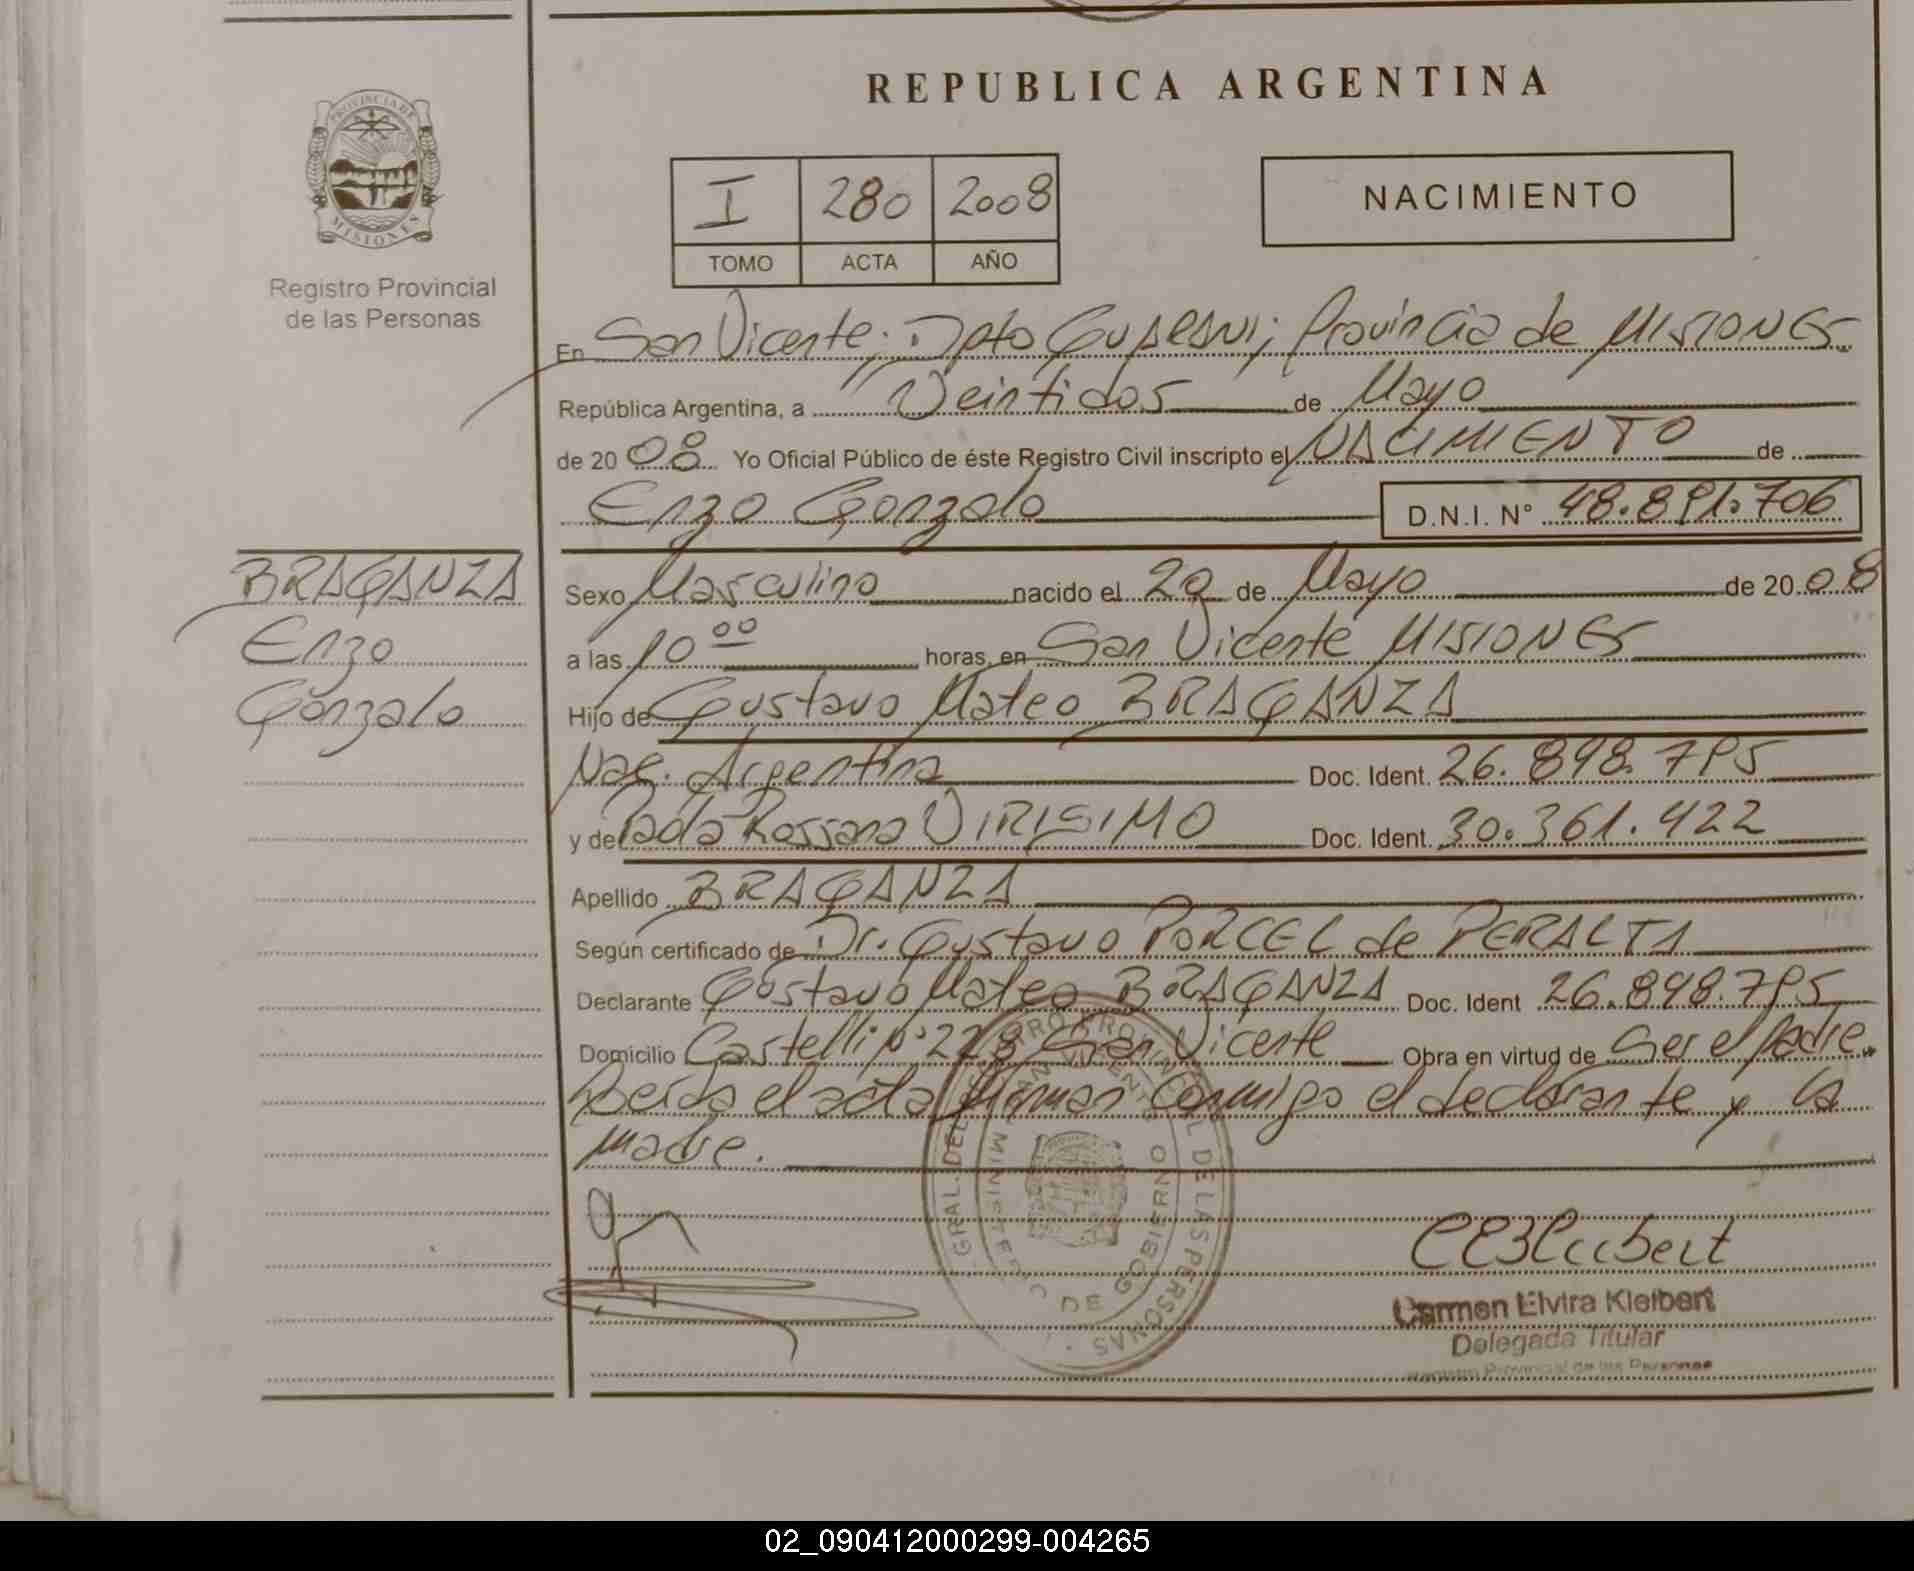 REPUBLICA ARGENTINA
PROVINCIA DE
MISIONES
Registro Provincial
de las Personas
I 280 2008
TOMO ACTA AÑO
NACIMIENTO
En San Vicente; Dpto Guarani; Provincia de MISIONES
República Argentina, a Veintidos de Mayo
de 2008 Yo Oficial Público de éste Registro Civil inscripto el NACIMIENTO de
Enzo Gonzalo D.N.I. N° 48.891.706
BRAGANZA
Enzo
Gonzalo
Sexo Masculino nacido el 20 de Mayo de 2008
a las 10 00 horas, en San Vicente MISIONES
Hijo de Gustavo Mateo BRAGANZA
Nac. Argentina Doc. Ident. 26.898.795
y de Paola Rossana VIRISIMO Doc. Ident. 30.361.422
Apellido BRAGANZA
Según certificado de Dr. Gustavo PORCEL de PERALTA
Declarante Gustavo Mateo BRAGANZA Doc. Ident 26.898.795
Domicilio Castelli N° 228 San Vicente Obra en virtud de Ser el Padre.
Leida el acta firman conmigo el declarante y la
madre.
Carmen Elvira Kleibert
Delegada Titular
Registro Provincial de las Personas
02_090412000299-004265